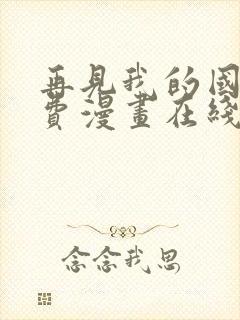 再見我的國
費漫畫在綫
念念我思